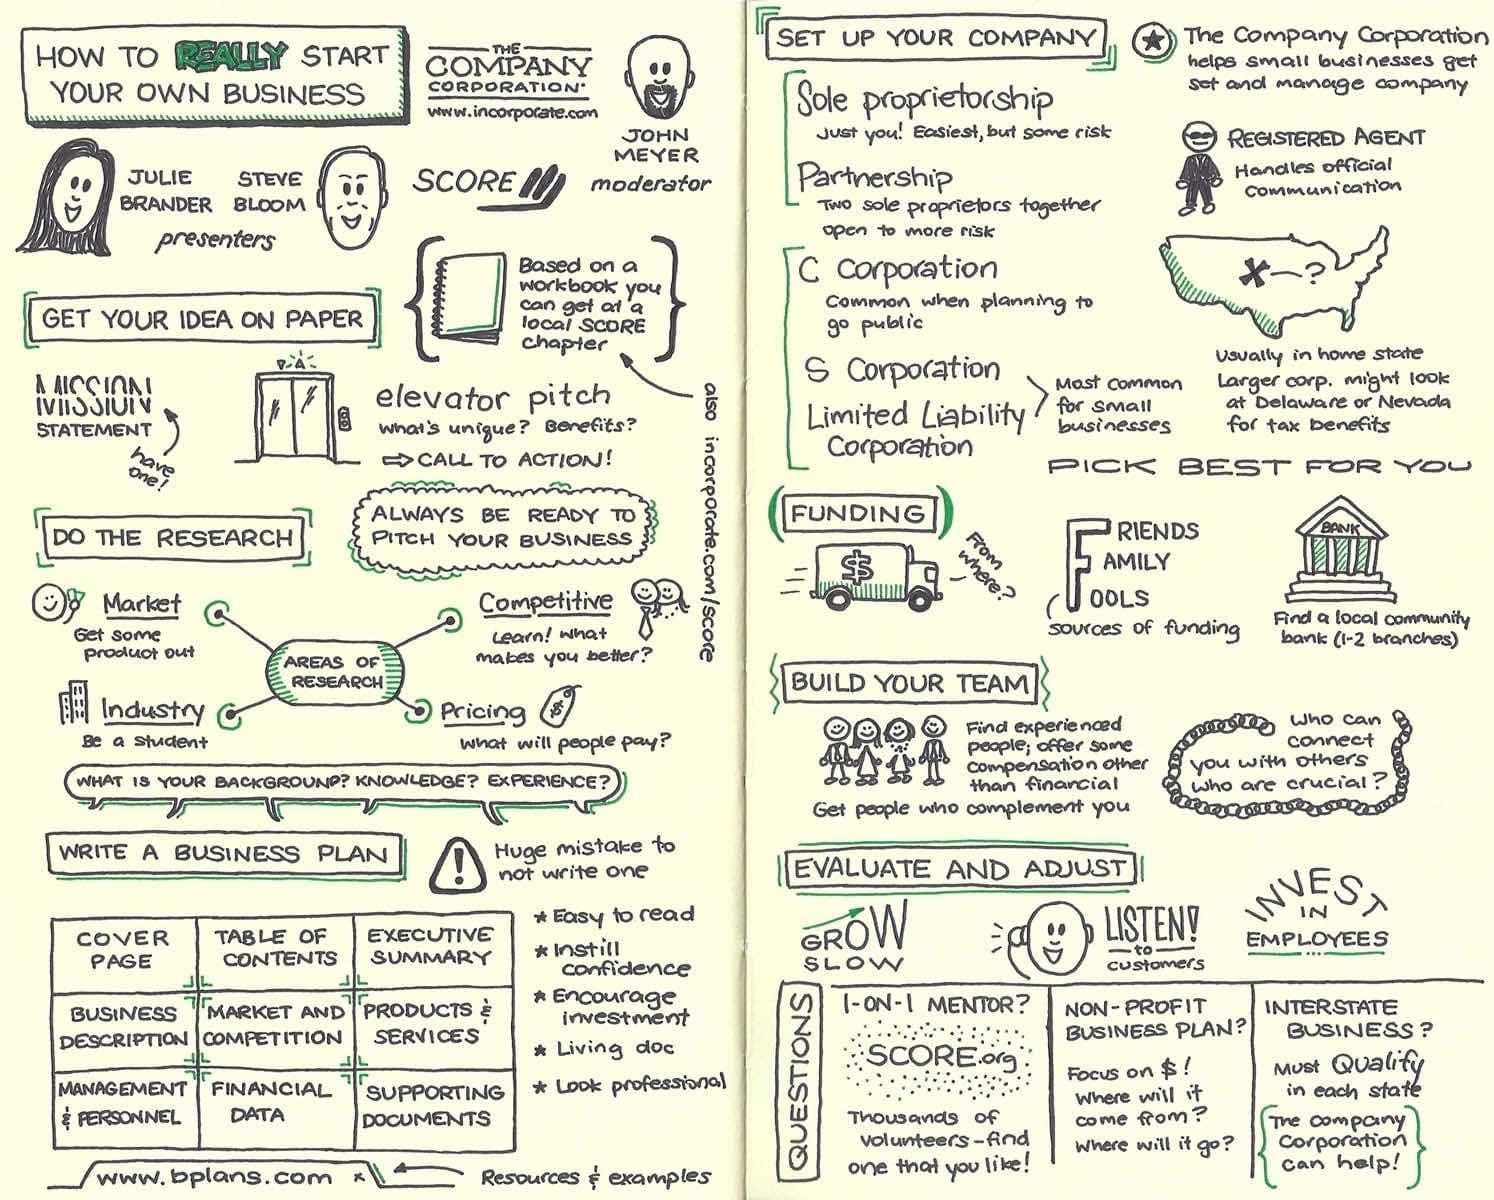 HOW TO REALLY START
YOUR OWN BUSINESS
THE
COMPANY
CORPORATION
www.incorporate.com
JOHN
MEYER
moderator
JULIE
BRANDER
STEVE
BLOOM
presenters
SCORE
GET YOUR IDEA ON PAPER
Based on a
workbook you
can get at a
local SCORE
chapter
also incorporate.com/score
MISSION
STATEMENT
have
one!
elevator pitch
what's unique? Benefits?
⇨ CALL TO ACTION!
ALWAYS BE READY TO
PITCH YOUR BUSINESS
DO THE RESEARCH
AREAS OF
RESEARCH
Market
Get some
product out
Competitive
Learn! What
makes you better?
Industry
Be a student
Pricing
$
What will people pay?
WHAT IS YOUR BACKGROUND? KNOWLEDGE? EXPERIENCE?
WRITE A BUSINESS PLAN
!
Huge mistake to
not write one
COVER
PAGE
TABLE OF
CONTENTS
EXECUTIVE
SUMMARY
BUSINESS
DESCRIPTION
MARKET AND
COMPETITION
PRODUCTS &
SERVICES
MANAGEMENT
& PERSONNEL
FINANCIAL
DATA
SUPPORTING
DOCUMENTS
* Easy to read
* Instill
confidence
* Encourage
investment
* Living doc
* Look professional
www.bplans.com x
Resources & examples
SET UP YOUR COMPANY
Sole proprietorship
Just you! Easiest, but some risk
Partnership
Two sole proprietors together
open to more risk
C Corporation
Common when planning to
go public
S Corporation
Limited Liability
Corporation
Most common
for small
businesses
The Company Corporation
helps small businesses get
set and manage company
REGISTERED AGENT
Handles official
communication
X ?
Usually in home state
Larger corp. might look
at Delaware or Nevada
for tax benefits
PICK BEST FOR YOU
FUNDING
$
From
where?
FRIENDS
FAMILY
FOOLS
sources of funding
BANK
Find a local community
bank (1-2 branches)
BUILD YOUR TEAM
Find experienced
people; offer some
compensation other
than financial
Get people who complement you
Who can
connect
you with others
who are crucial?
EVALUATE AND ADJUST
GROW
SLOW
LISTEN!
to
customers
INVEST
IN
EMPLOYEES
QUESTIONS
1-ON-1 MENTOR?
SCORE.org
Thousands of
volunteers - find
one that you like!
NON-PROFIT
BUSINESS PLAN?
Focus on $!
Where will it
come from?
Where will it go?
INTERSTATE
BUSINESS?
Must Qualify
in each state
The company
Corporation
can help!